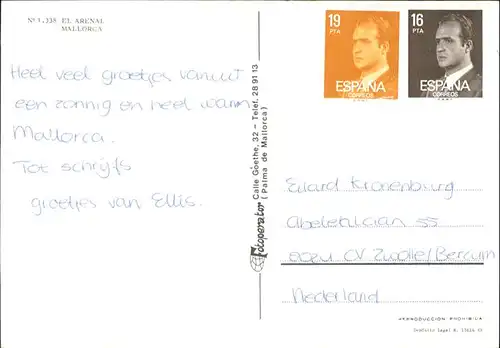 Nº 1.338 EL ARENAL
MALLORCA
Heel veel groetjes vanuit
een zonnig en heel warm
Mallorca.
Tot schrijfs
groetjes van Ellis.
Fotoperator
Calle Goethe, 32 - Teléf. 28 91 13
( Palma de Mallorca )
19
PTA
ESPAÑA
CORREOS
16
PTA
ESPAÑA
CORREOS
Eduard Kronenburg
55
CV Zwolle/Bercum
Nederland
REPRODUCCION PROHIBIDA
Depósito Legal B.